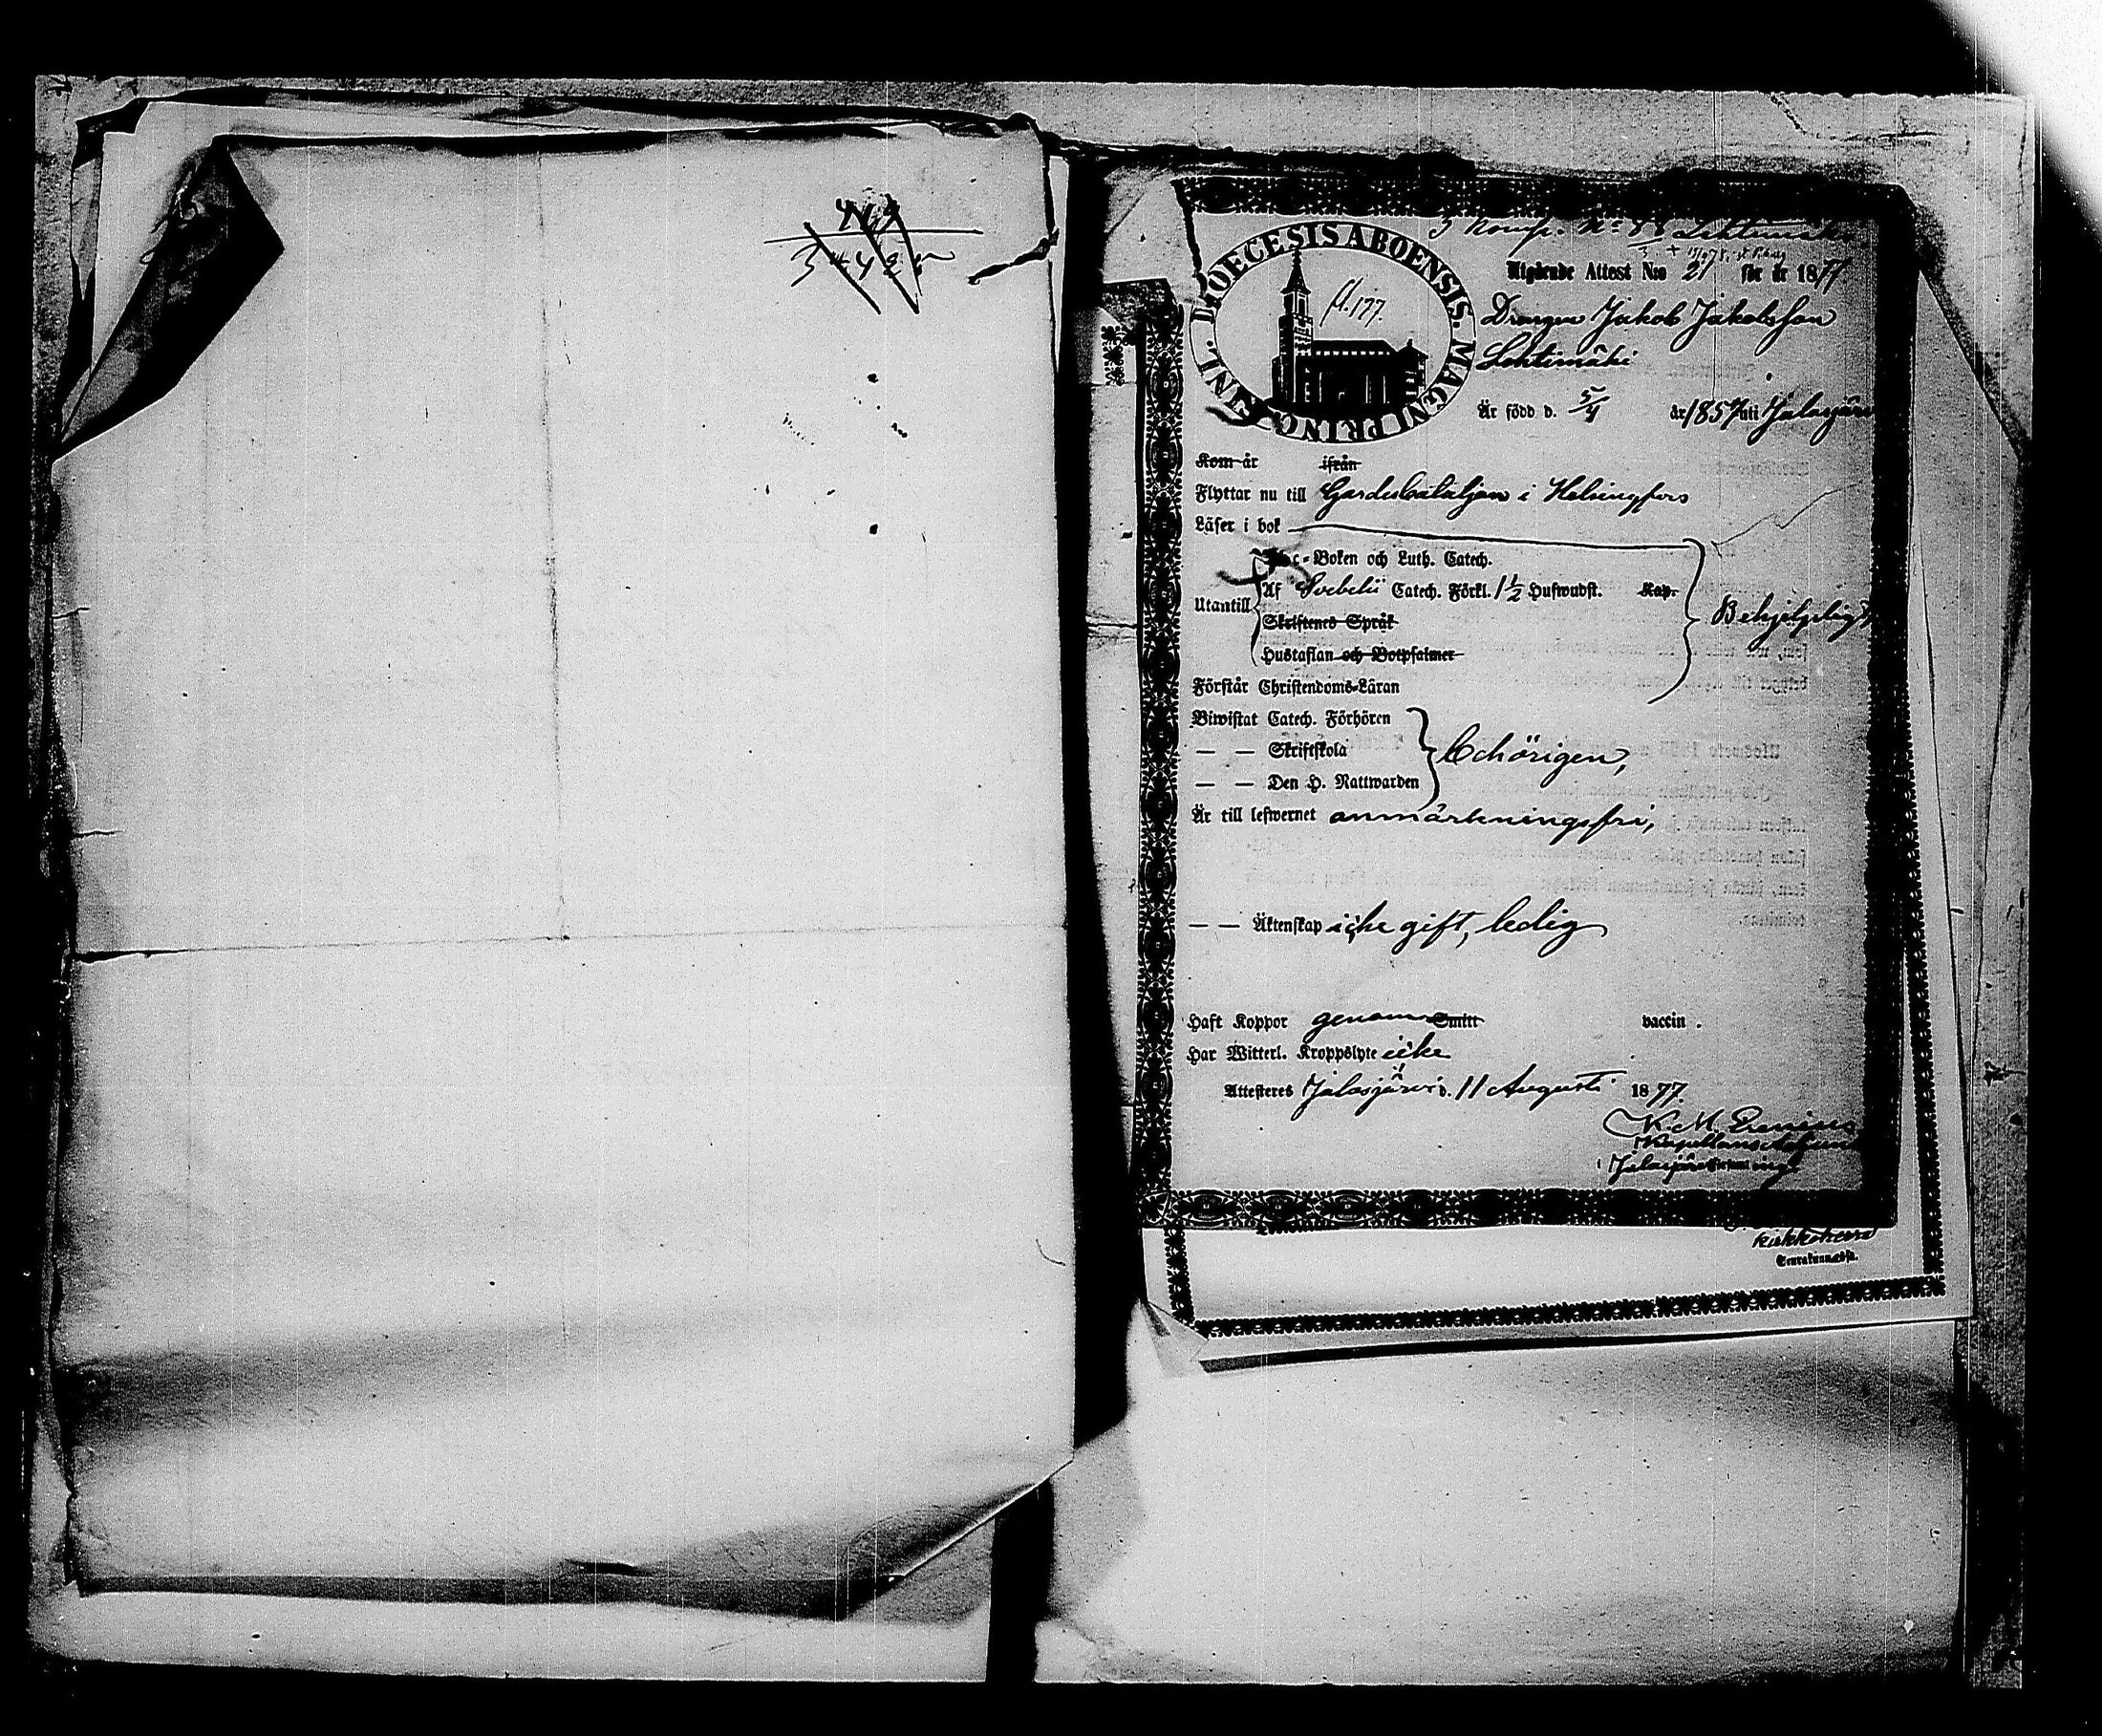 419
3 Komp. No 88 Lehtimäki
DIOECESIS ABOENSIS. MAGNI PRINC. FINL.
fl. 177.
Utgående Attest N:o 21 för år 1877
Drengen Jakob Jakobsson
Lehtimäki
Är född d. 5/4 år 1857 uti Jalasjärvi
Kom år ifrån
Flyttar nu till Gardesbataljon i Helsingfors
Läser i bok
Abc-Boken och Luth. Catech.
Utantill Af Svebelii Catech. Förkl. 1 1/2 Hufwudst. Kap.
Skriftenes Språk
Behjelpligt
Hustaflan och Botpsalmer
Förstår Christendoms-Läran
Biwistat Catech. Förhören
— — Skriftskola behörigen,
— — Den H. Nattwarden
Är till lefwernet anmärkningsfri,
— — Äktenskap icke gift, ledig
Haft Koppor genom Smitt vaccin.
Har Witterl. Kroppslyte icke
Attesteres Jalasjärvi d. 11 Augusti 1877.
Kapellans
Jalasjärvi
kirkkoherra